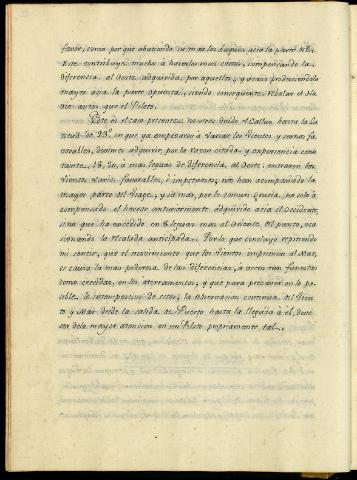 favor, como por que abatiendo su mar los Buques acia la parte del
Este contribuye mucho à hacerlas mas cortas, compensando la
diferencia al Oeste adquirida por aquellos, y acaso produciendola
mayor acia la parte opuesta, siendo consequente recalar el Na-
vio antes que el Piloto.
Este es el caso presente: nosotros desde el Callao, hasta la La-
titud de 23°. en que ya empezaron à variar los Vientos y sernos fa-
vorables, devimos adquirir, por la razon citada, y experiencia cons-
tante, 18, 20, ò mas leguas de diferencia al Oeste: entraron los
Vientos varios favorables, è impetuosos; nos han acompañado la
mayor parte del Viage, y su mar, por lo comun gruesa, no solo à
compensado el herror anteriormente adquirido acia el Occidente,
sino que ha excedido en 8 leguas mas al Oriente del punto, oca-
sionando la Recalada anticipada. Por lo que concluyo repitiendo
mi sentir, que el movimiento que los Vientos imprimen al Mar,
es causa la mas poderosa de las diferencias, à veces tan funestas
como crecidas, en los aterramientos; y que para precaver en lo po-
sible lo intempestivo de estos, la observacion continua del Vien-
to y Mar desde la salida de Puerto hasta la llegada à el, deve
ser de la mayor atencion en un Piloto propriamente tal.